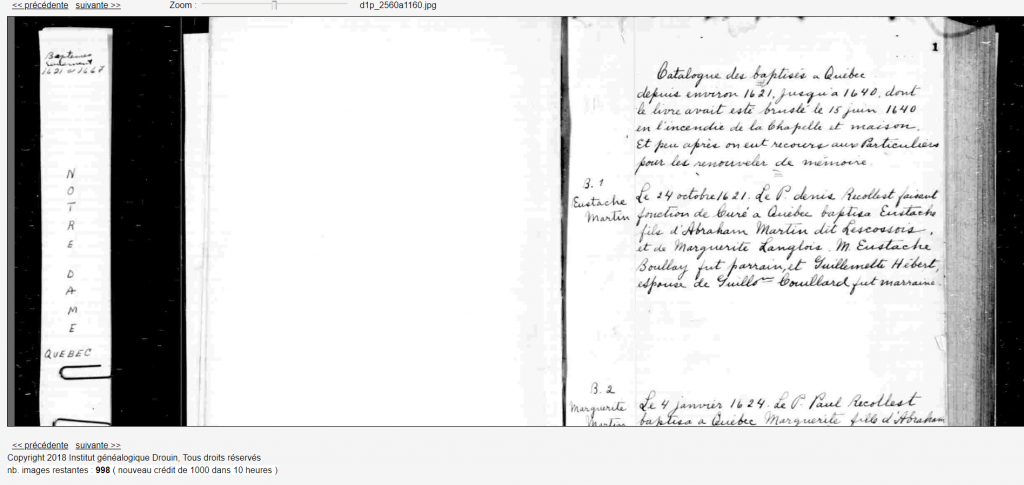 << précédente suivante >> Zoom : d1p_2560a1160.jpg
Baptemes
seulement
1621 à 1667
NOTRE DAME
QUEBEC
1
Catalogue des baptisés a Québec
depuis environ 1621. jusqu'a 1640. dont
le livre avait esté bruslé le 15 juin 1640
en l'incendie de la Chapelle et maison.
Et peu après on eut recours aux Particuliers
pour les renouveler de mémoire.
B. 1
Eustache
Martin
Le 24 octobre 1621. Le P. denis Recollest faisant
fonction de Curé a Quebec baptisa Eustache
fils d'Abraham Martin dit Lescossois,
et de Marguerite Langlois. M. Eustache
Boullay fut parrain, et Guillemette Hébert,
espouse de Guillo^me Couillard fut marraine.
B. 2
Marguerite
Martin
Le 4 janvier 1624. Le P. Paul Recollest
baptisa a Québec Marguerite fille d'Abraham
<< précédente suivante >>
Copyright 2018 Institut généalogique Drouin, Tous droits réservés
nb. images restantes : 998 ( nouveau crédit de 1000 dans 10 heures )